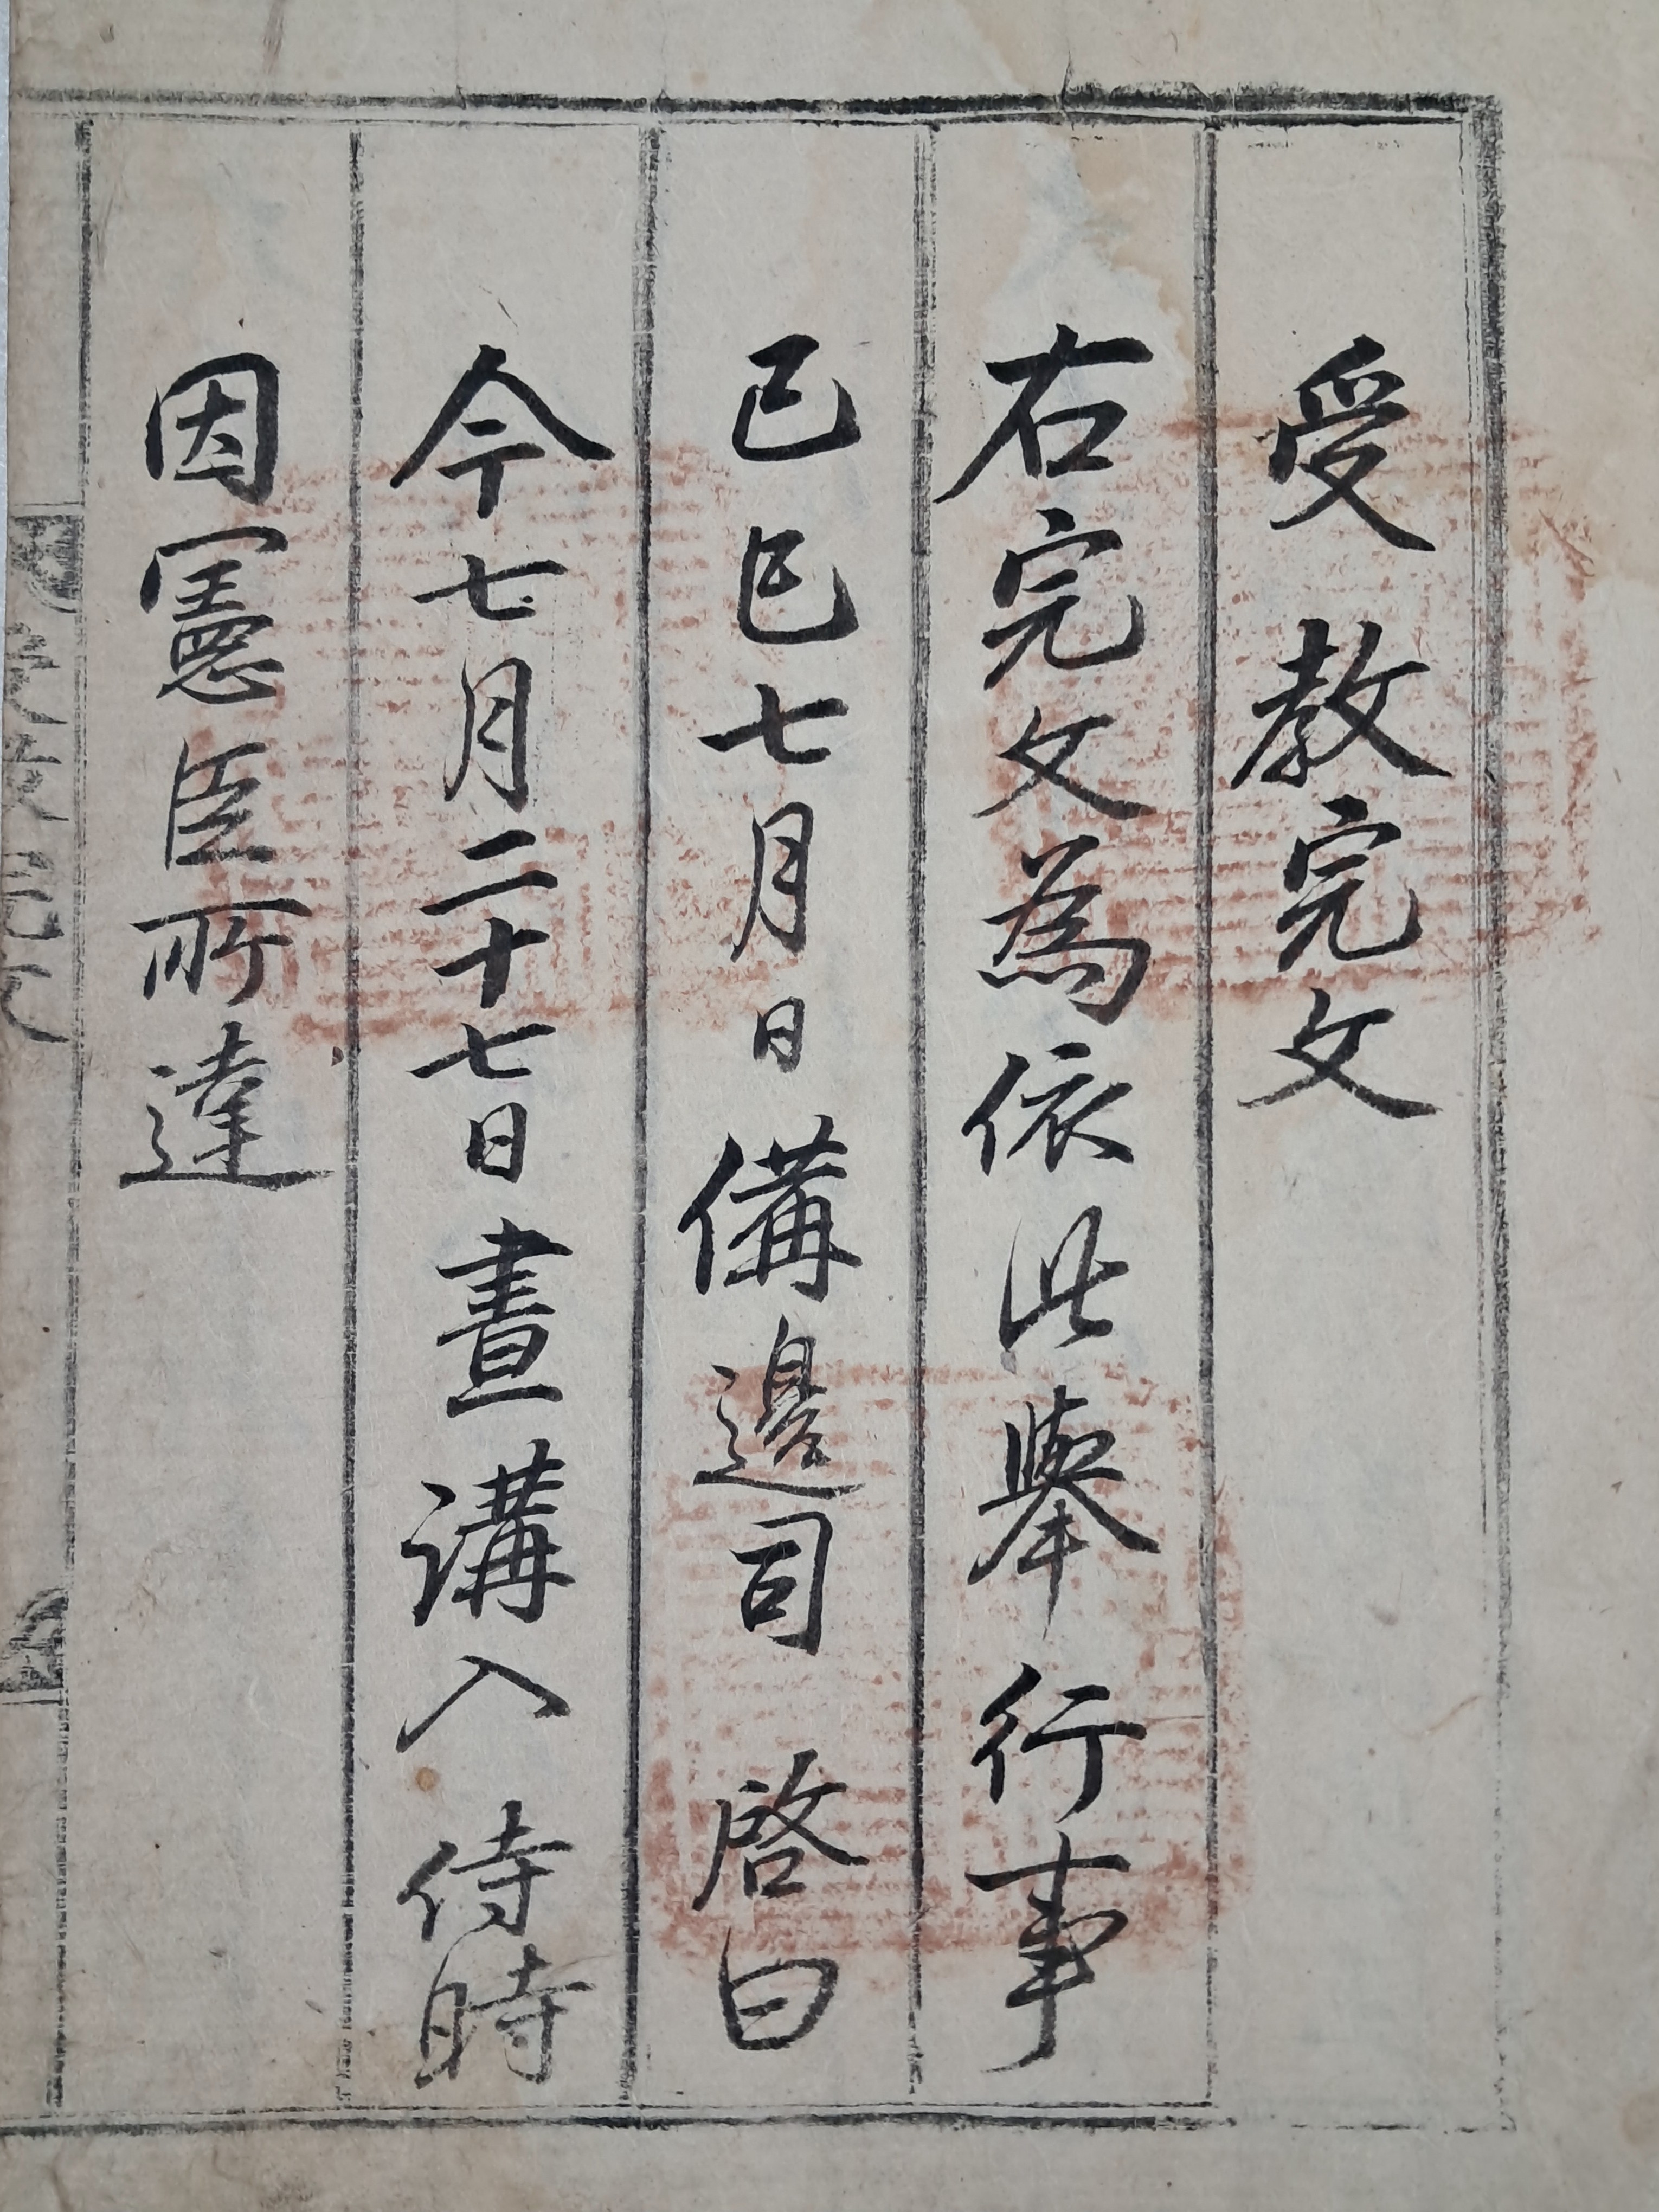 受 教完文
右完文爲依此擧行事
己巳七月日備邊司 啓曰
今七月二十七日晝講入 侍時
因憲臣所達